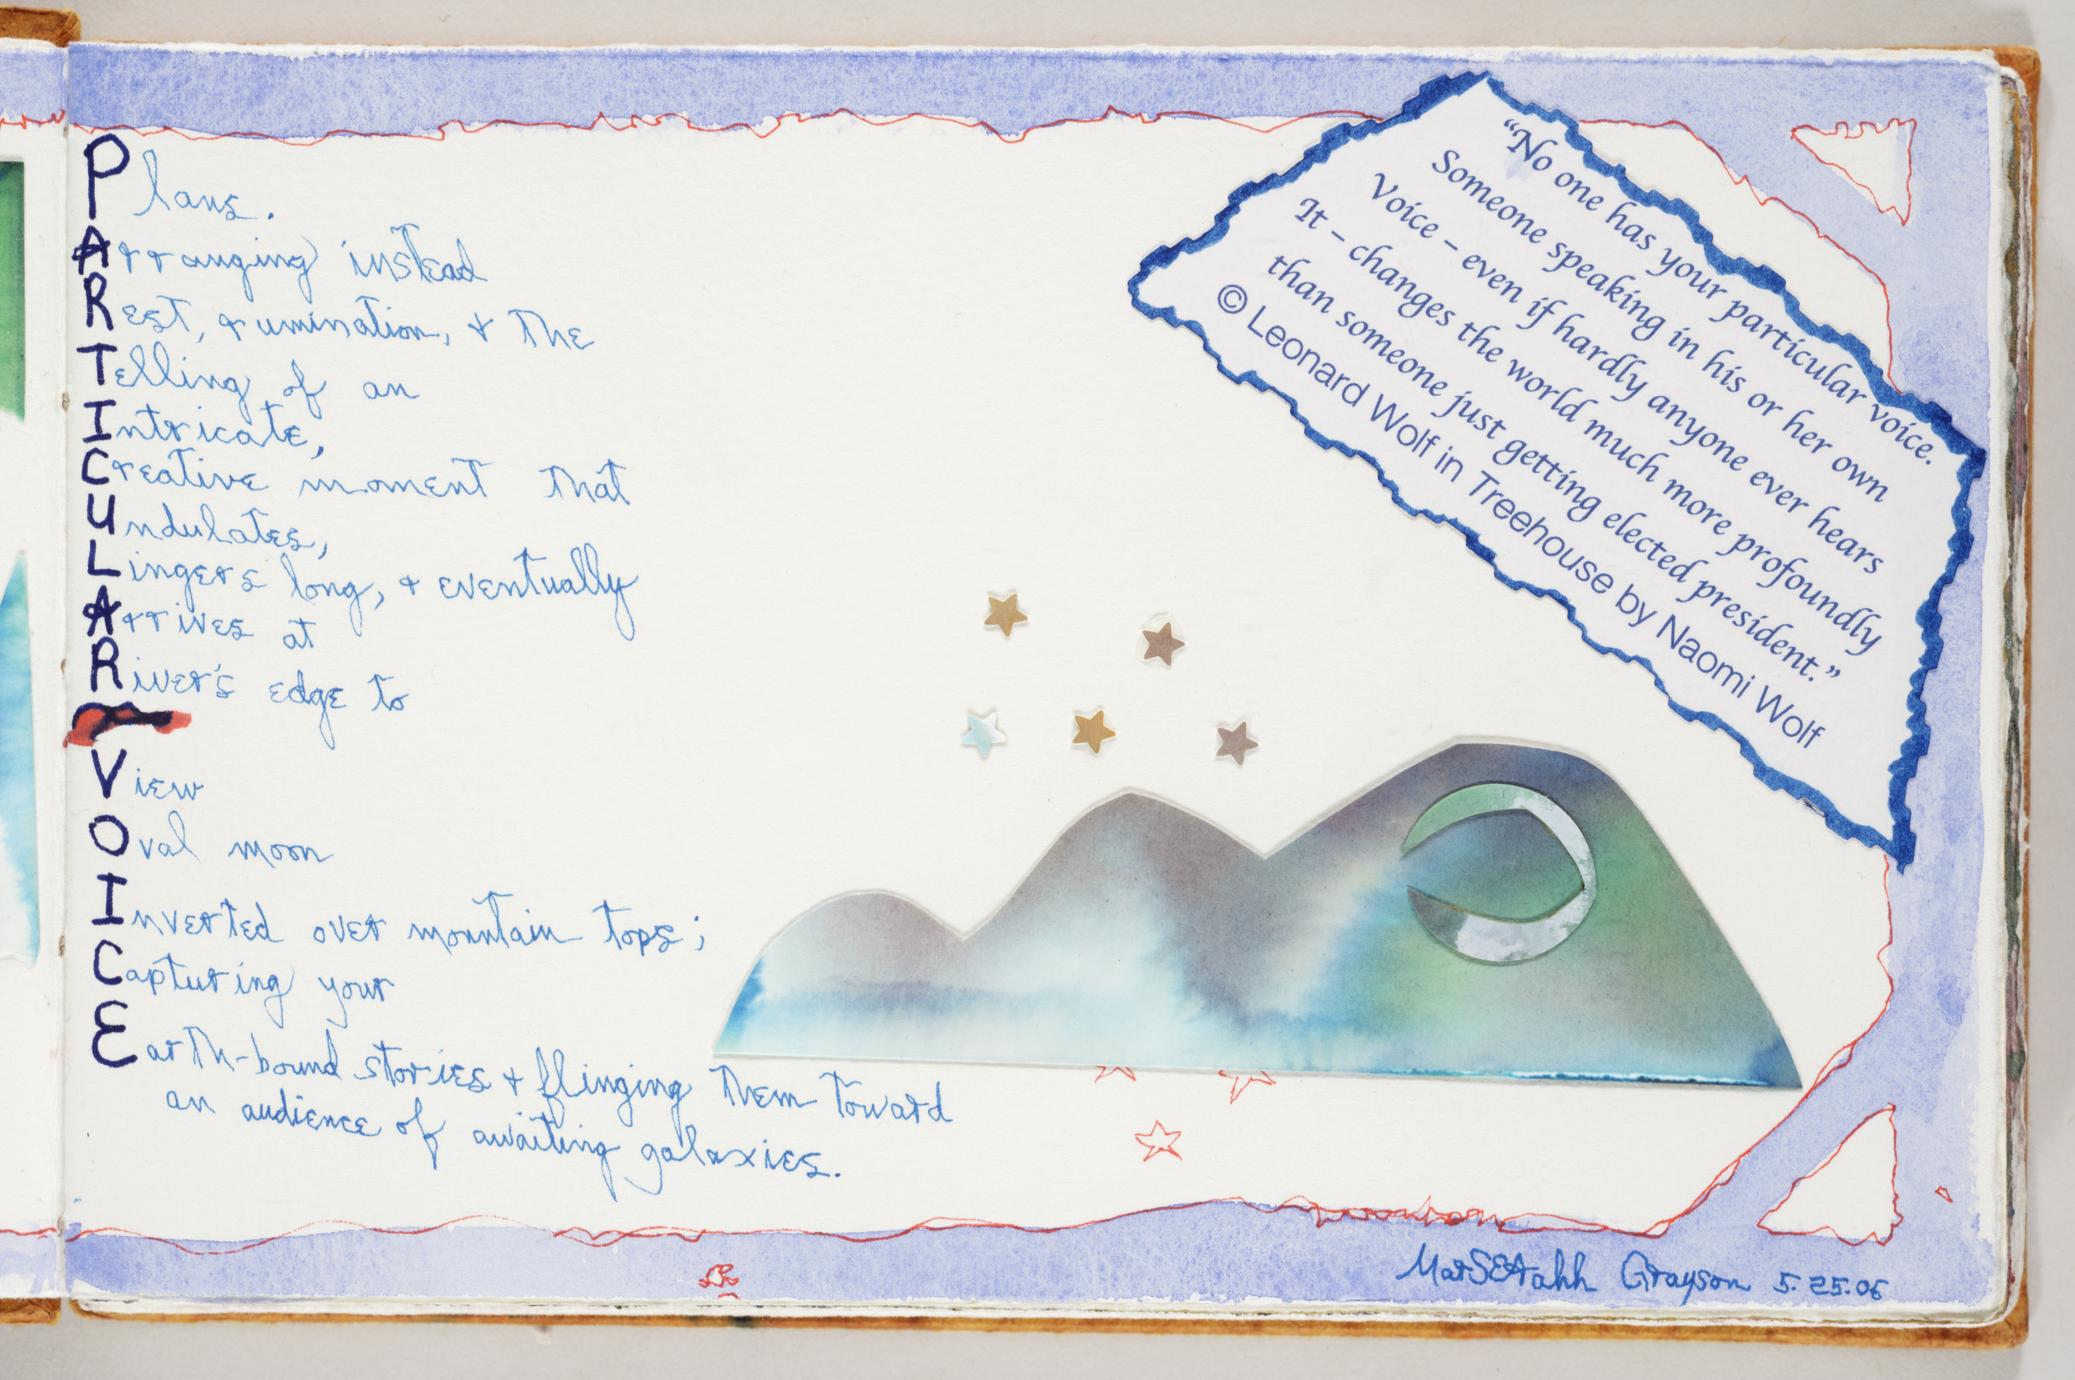 Plans.
Arranging instead
Rest, rumination, & the
Telling of an
Intricate,
Creative moment that
Undulates,
Lingers long, & eventually
Arrives at
River's edge to
View
Oval moon
Inverted over mountain tops;
Capturing your
Earth-bound stories & flinging them toward
an audience of awaiting galaxies.
"No one has your particular voice.
Someone speaking in his or her own
Voice – even if hardly anyone ever hears
It – changes the world much more profoundly
than someone just getting elected president."
© Leonard Wolf in Treehouse by Naomi Wolf
MarSEAahh Grayson 5.25.06